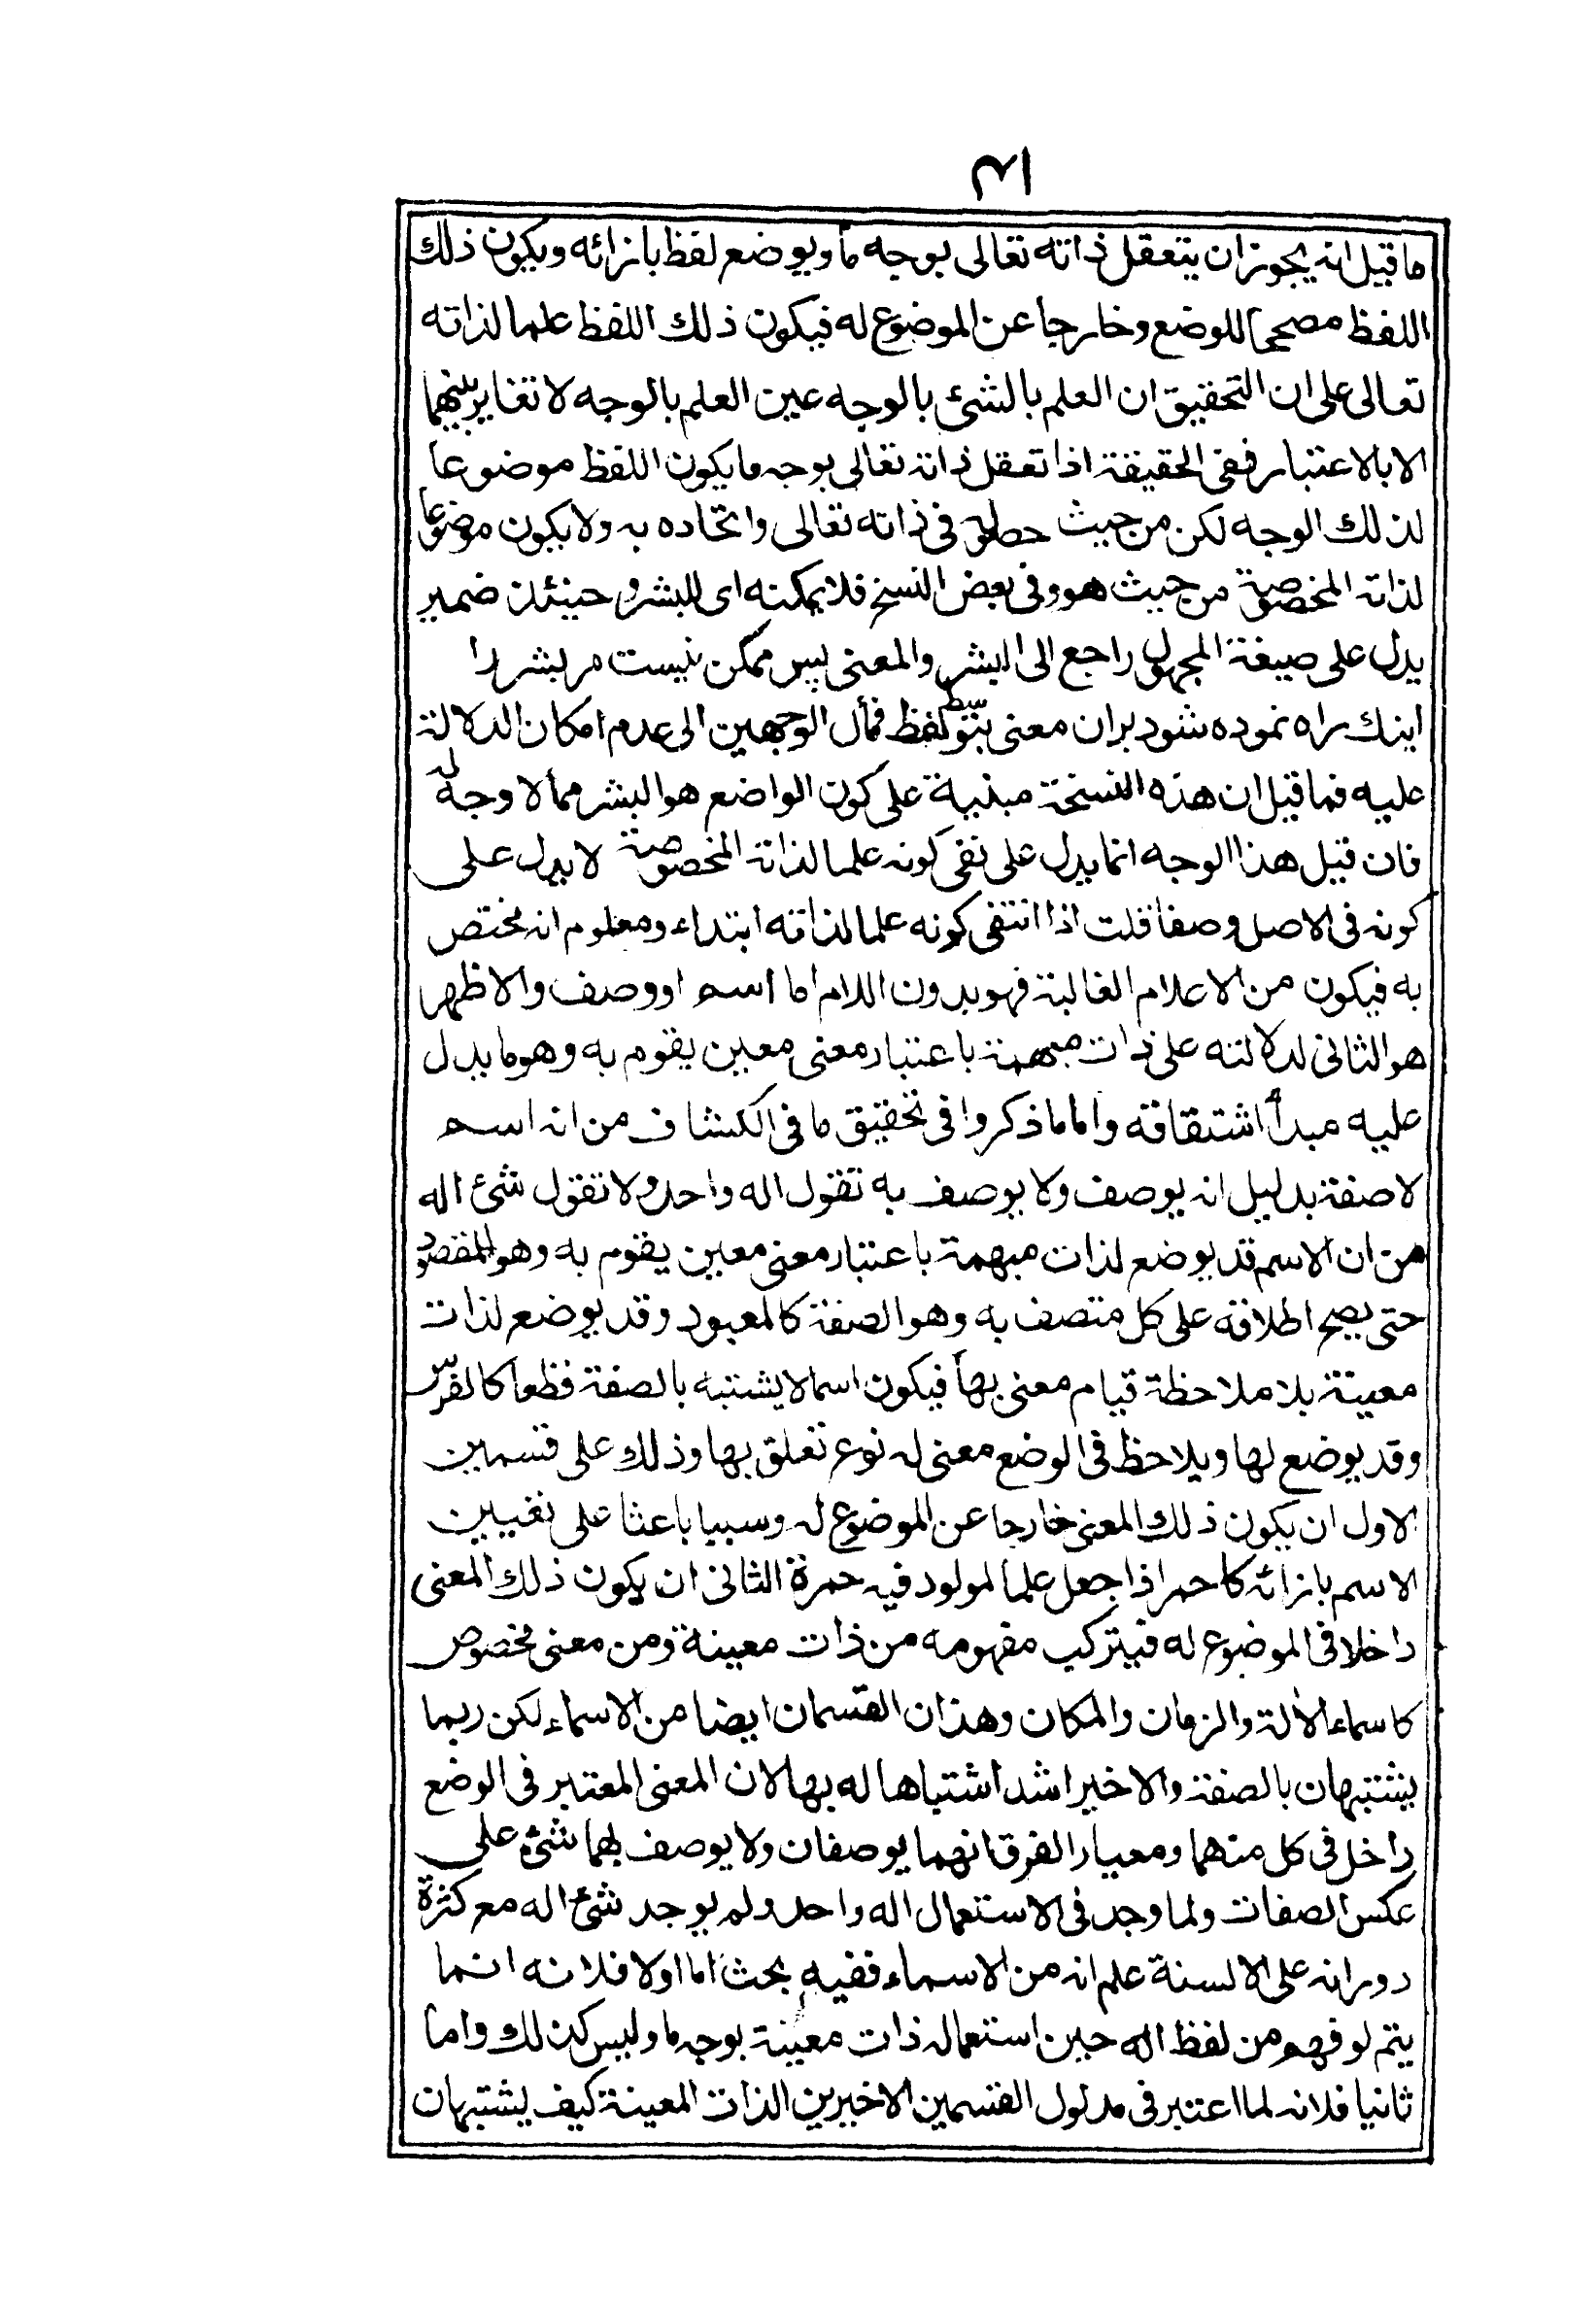 ١٣
ما قيل انه يجوز ان يتعقل ذاته تعالى بوجه ما ويوضع لفظ بازائه ويكون ذلك
اللفظ مصححا للوضع وخارجا عن الموضوع له فيكون ذلك اللفظ علما لذاته
تعالى على ان التحقيق ان العلم بالشئ بالوجه عين العلم بالوجه لا تغاير بينهما
الا بالاعتبار ففى الحقيقة اذا تعقل ذاته تعالى بوجه ما يكون اللفظ موضوعا
لذلك الوجه لكن من حيث حصوله فى ذاته تعالى واتحاده به ولا يكون موضوعا
لذاته المخصوصة من حيث هو وفى بعض النسخ فلا يمكنه اى للبشر وحينئذ ضمير
يدل على صيغة المجهول راجع الى البشر والمعنى پس ممكن نيست مر بشر را
اينك راه نموده شود بران معنى بتوسط لفظ فمأل الوجهين الى عدم امكان الدلالة
عليه فما قيل ان هذه النسخة مبنية على كون الواضع هو البشر مما لا وجه له
فان قيل هذا الوجه انما يدل على نفى كونه علما لذاته المخصوصة لا يدل على
كونه فى الاصل وصفا قلت اذا انتفى كونه علما لذاته ابتداء ومعلوم انه مختص
به فيكون من الاعلام الغالبة فهو بدون اللام اما اسم او وصف والاظهر
هو الثانى لدلالته على ذات مبهمة باعتبار معنى معين يقوم به وهو ما يدل
عليه مبدأ اشتقاقه واما ما ذكروا فى تحقيق ما فى الكشاف من انه اسم
لا صفة بدليل انه يوصف ولا يوصف به تقول اله واحد ولا تقول شئ اله
من ان الاسم قد يوضع لذات مبهمة باعتبار معنى معين يقوم به وهو المقصود
حتى يصح اطلاقه على كل متصف به وهو الصفة كالمعبود وقد يوضع لذات
معينة بلا ملاحظة قيام معنى بها فيكون اسما لا يشتبه بالصفة قطعا كالفرس
وقد يوضع لها ويلاحظ فى الوضع معنى له نوع تعلق بها وذلك على قسمين
الاول ان يكون ذلك المعنى خارجا عن الموضوع له وسببا باعثا على تعيين
الاسم بازائه كاحمر اذا جعل علما لمولود فيه حمرة الثانى ان يكون ذلك المعنى
داخلا فى الموضوع له فيتركب مفهومه من ذات معينة ومن معنى مخصوص
كاسماء الالة والزمان والمكان وهذان القسمان ايضا من الاسماء لكن ربما
يشتبهان بالصفة والاخير اشد اشتباها له بها لان المعنى المعتبر فى الوضع
داخل فى كل منهما ومعيار الفرق انهما يوصفان ولا يوصف بهما شئ على
عكس الصفات ولما وجد فى الاستعمال اله واحد ولم يوجد شئ اله مع كثرة
دورانه على الالسنة علم انه من الاسماء ففيه بحث اما اولا فلانه انما
يتم لو فهم من لفظ اله حين استعماله ذات معينة بوجه ما وليس كذلك واما
ثانيا فلانه لما اعتبر فى مدلول القسمين الاخيرين الذات المعينة كيف يشتبهان